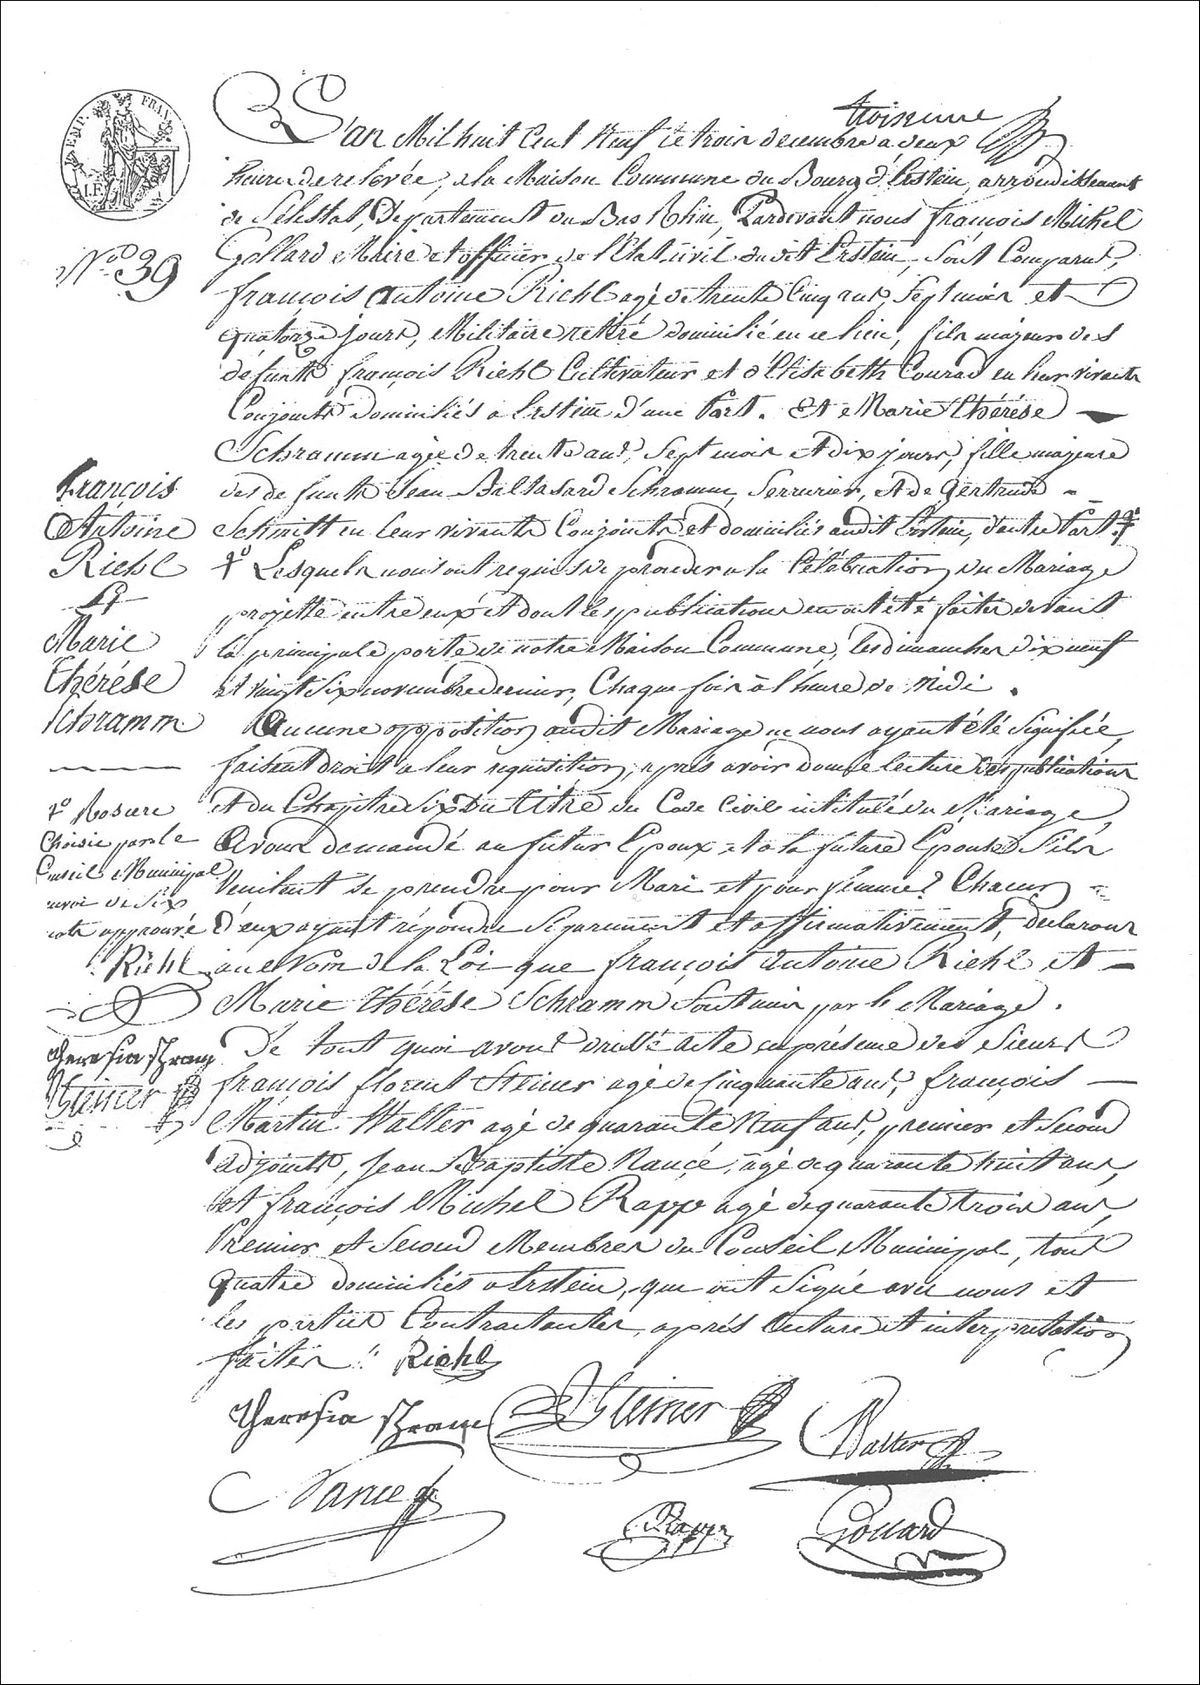 EMP. FRAN
troisieme
L'an Mil huit Cent Neuf le trois decembre a deux
heures de relevée, a la Maison Commune du Bourg d'Erstein, arrondissement
de Sélestat, Departement du Bas Rhin, Pardevant nous françois Michel
Gollard Maire et officier de l'Etat civil dudit Erstein, Sont Comparus,
No. 39
françois Antoine Riehl agé de trente Cinq ans, Sept mois et
quatorze jours, Militaire retiré domicilié en ce lieu, fils majeur des
défunts françois Riehl Cultivateur et d'Elisabeth Conrad en leur vivants
Conjoints Domiciliés a Erstein d'une Part. Et Marie thérése
Schramm agée de trente ans, Sept mois et dix jours, fille majeure
des defunts Jean Baltasard Schramm, Serrurier, et de Gertrude
Schmitt en leur vivants Conjoints et domiciliés audit Erstein, d'autre Part.
Lesquels nous ont requis de proceder a la Célébration du Mariage
projetté entre eux et dont les publications ont été faites devant
la principale porte de notre Maison Commune, les dimanches dix neuf
et vingt Six novembre dernier, Chaque fois à l'heure de Midi.
Aucune opposition audit Mariage ne nous ayant été Signifiée,
faisant droit a leur requisition, apres avoir donné lecture des publications
et du Chapitre Six du titre du Code Civil intitulé du Mariage,
Avons demandé au futur Epoux et à la future Epouse S'ils
Veuillent se prendre pour Mari et pour femme? Chacun
d'eux ayant répondu Séparement et affirmativement, declarons
au Nom de la Loi que françois Antoine Riehl et
Marie thérése Schramm Sont unis par le Mariage.
De tout quoi avons dressé acte en présence des Sieurs
françois florent Steiner agé de Cinquante ans, françois
Martin Walter agé de quarante Neuf ans, premier et Second
adjoints, Jean Baptiste Nancé, agé de quarante huit ans,
et françois Michel Rapp agé de quarante trois ans,
Premier et Second Membres du Conseil Municipal, tous
quatre domiciliés a Erstein, qui ont Signé avec nous et
les parties Contractantes, après lecture et interpretation
faites. Riehl
françois
Antoine
Riehl
Et
Marie
thérése
Schramm
Rosure
Choisie par le
Conseil Municipal
de Six
approuvé
Riehl
theresia schram
Steiner
theresia schram Steiner Walter
Nancé Rapp Gollard